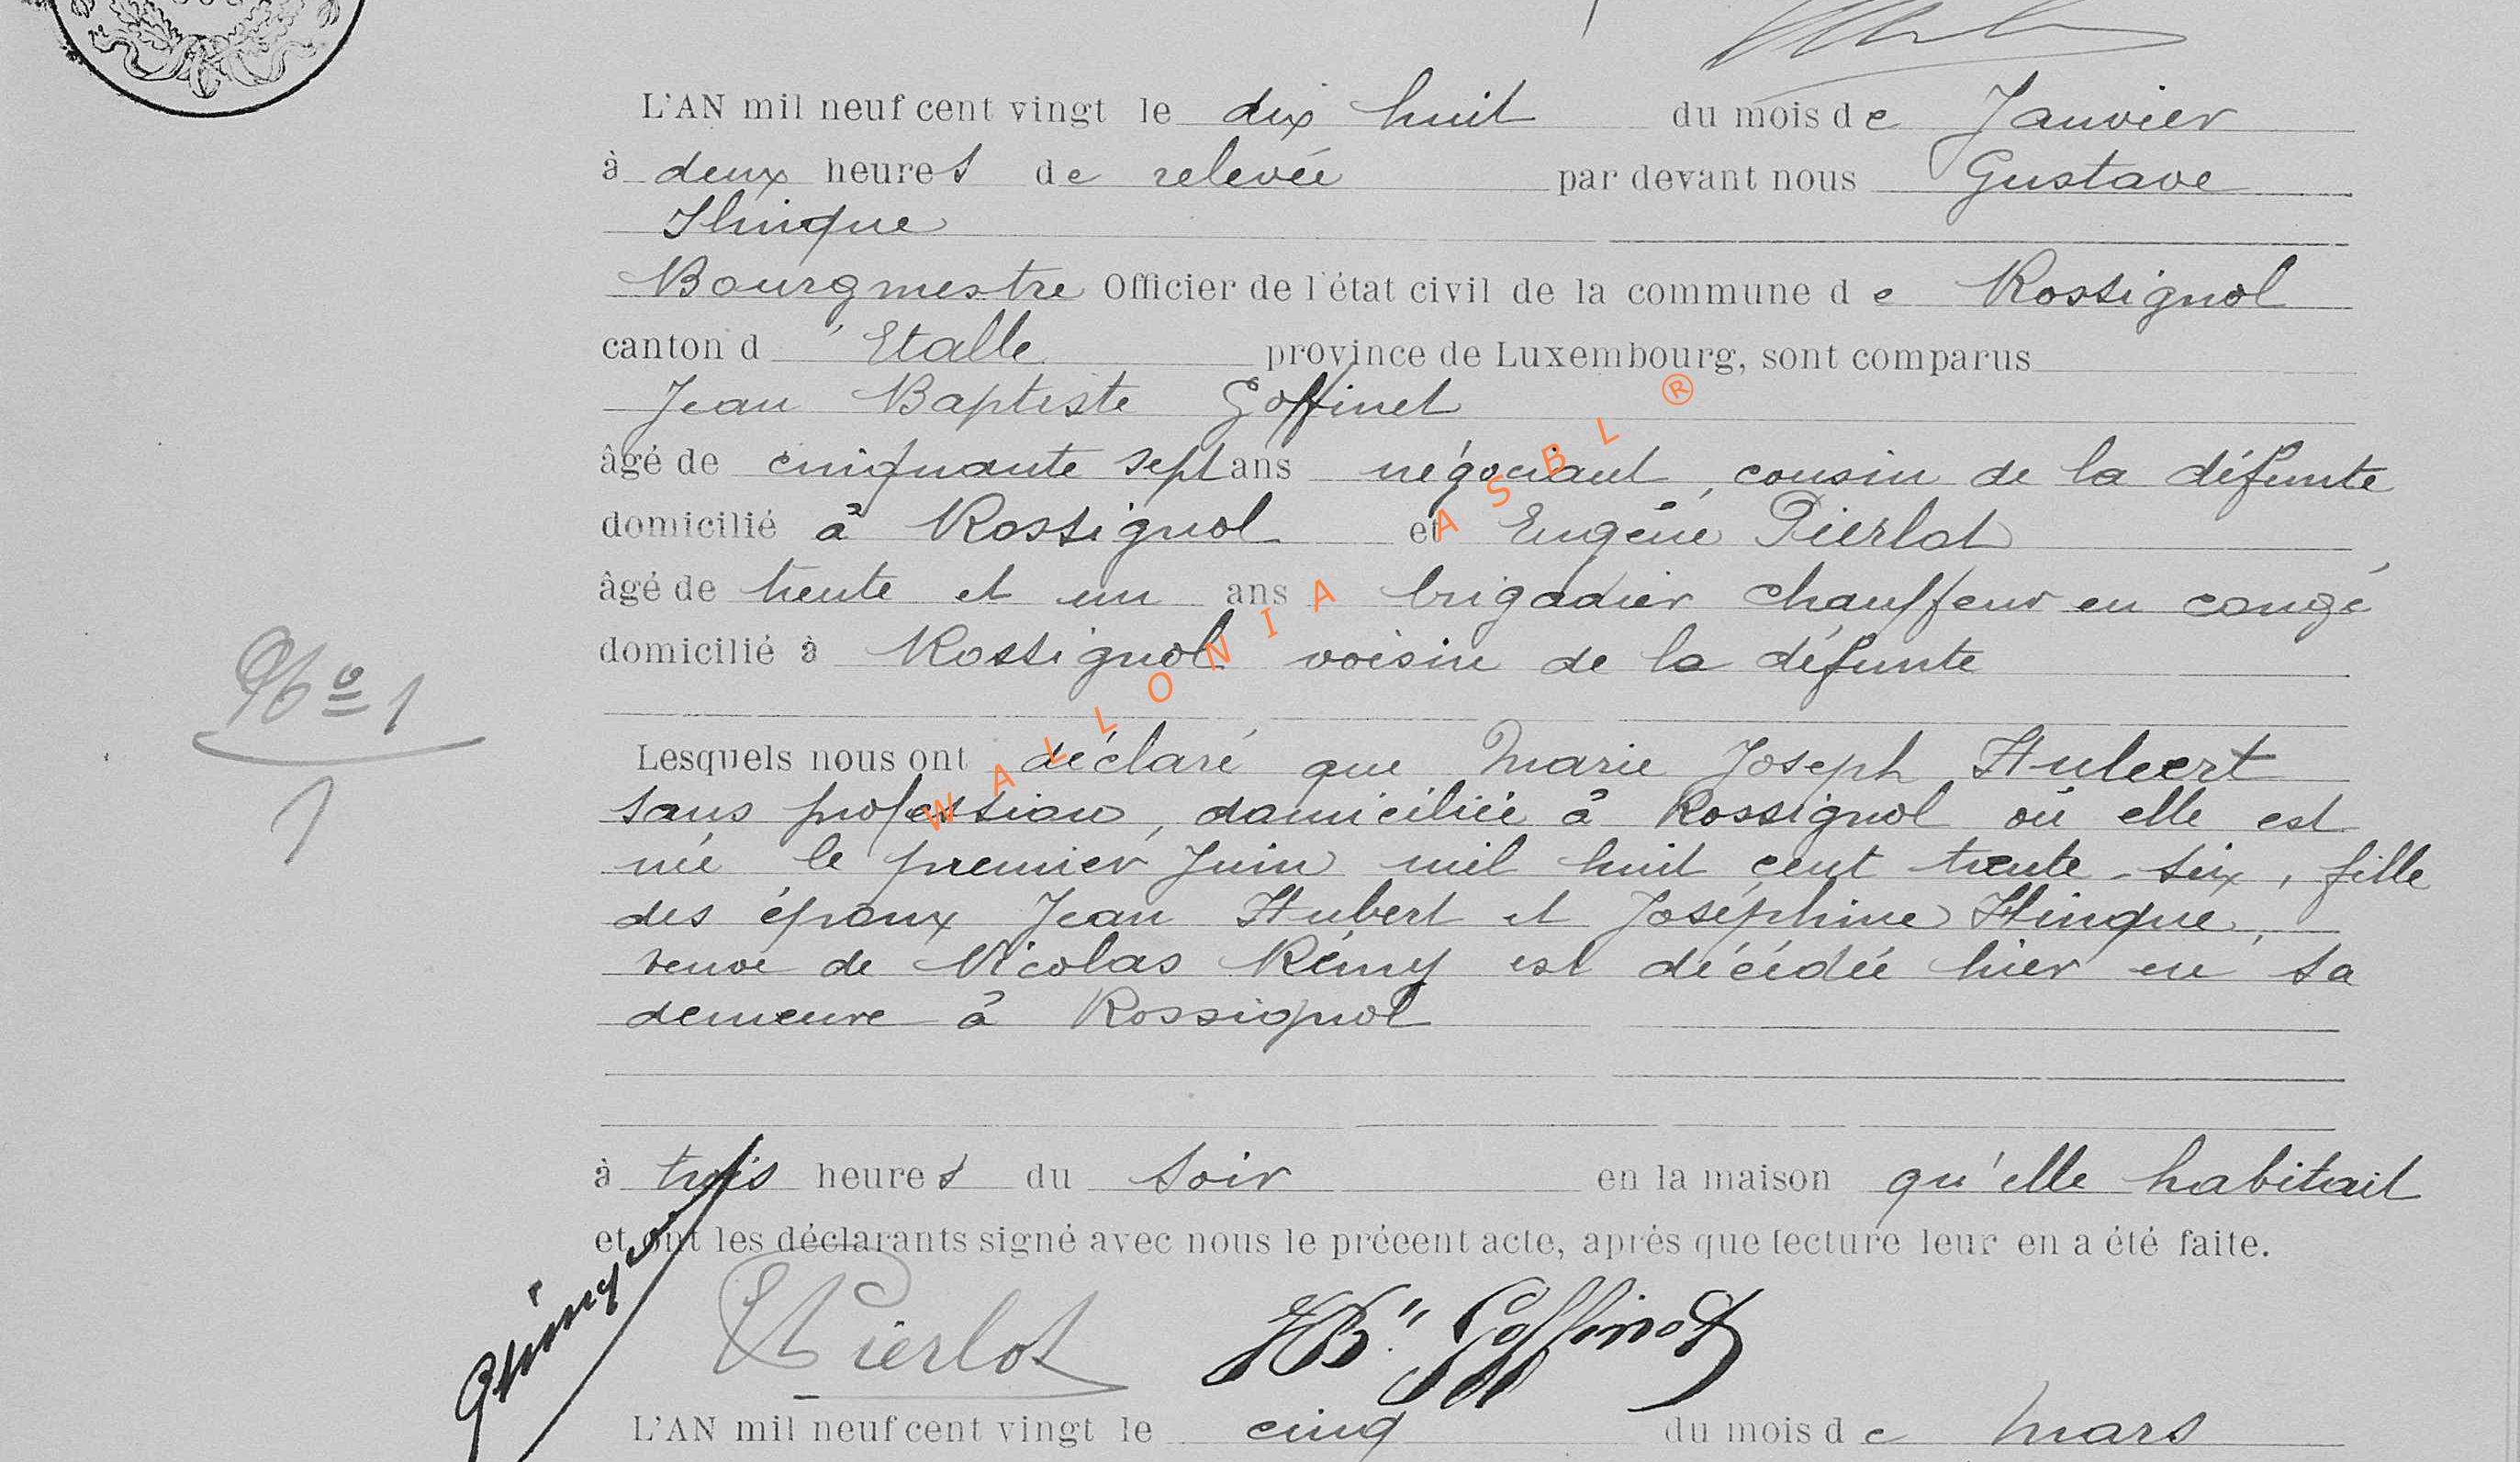 L'AN mil neuf cent vingt le dix huit du mois de Janvier
à deux heures de relevée par devant nous Gustave
Hinque
Bourgmestre Officier de l'état civil de la commune de Rossignol
canton d'Etalle province de Luxembourg, sont comparus
Jean Baptiste Goffinet
âgé de cinquante sept ans négociant, cousin de la défunte
domicilié à Rossignol et Eugène Pierlot
âgé de trente et un ans brigadier chauffeur en congé
domicilié à Rossignol voisin de la défunte
No 1
1
Lesquels nous ont déclaré que Marie Joseph Hubert
sans profession, domiciliée à Rossignol où elle est
née le premier Juin mil huit cent trente-six, fille
des époux Jean Hubert et Joséphine Hinque,
veuve de Nicolas Rémy est décédée hier en sa
demeure à Rossignol
à trois heures du soir en la maison qu'elle habitait
et ont les déclarants signé avec nous le précent acte, après que lecture leur en a été faite.
GHinque
E Pierlot JBte Goffinet
L'AN mil neuf cent vingt le cinq du mois de mars
WALLONIA ASBL ®